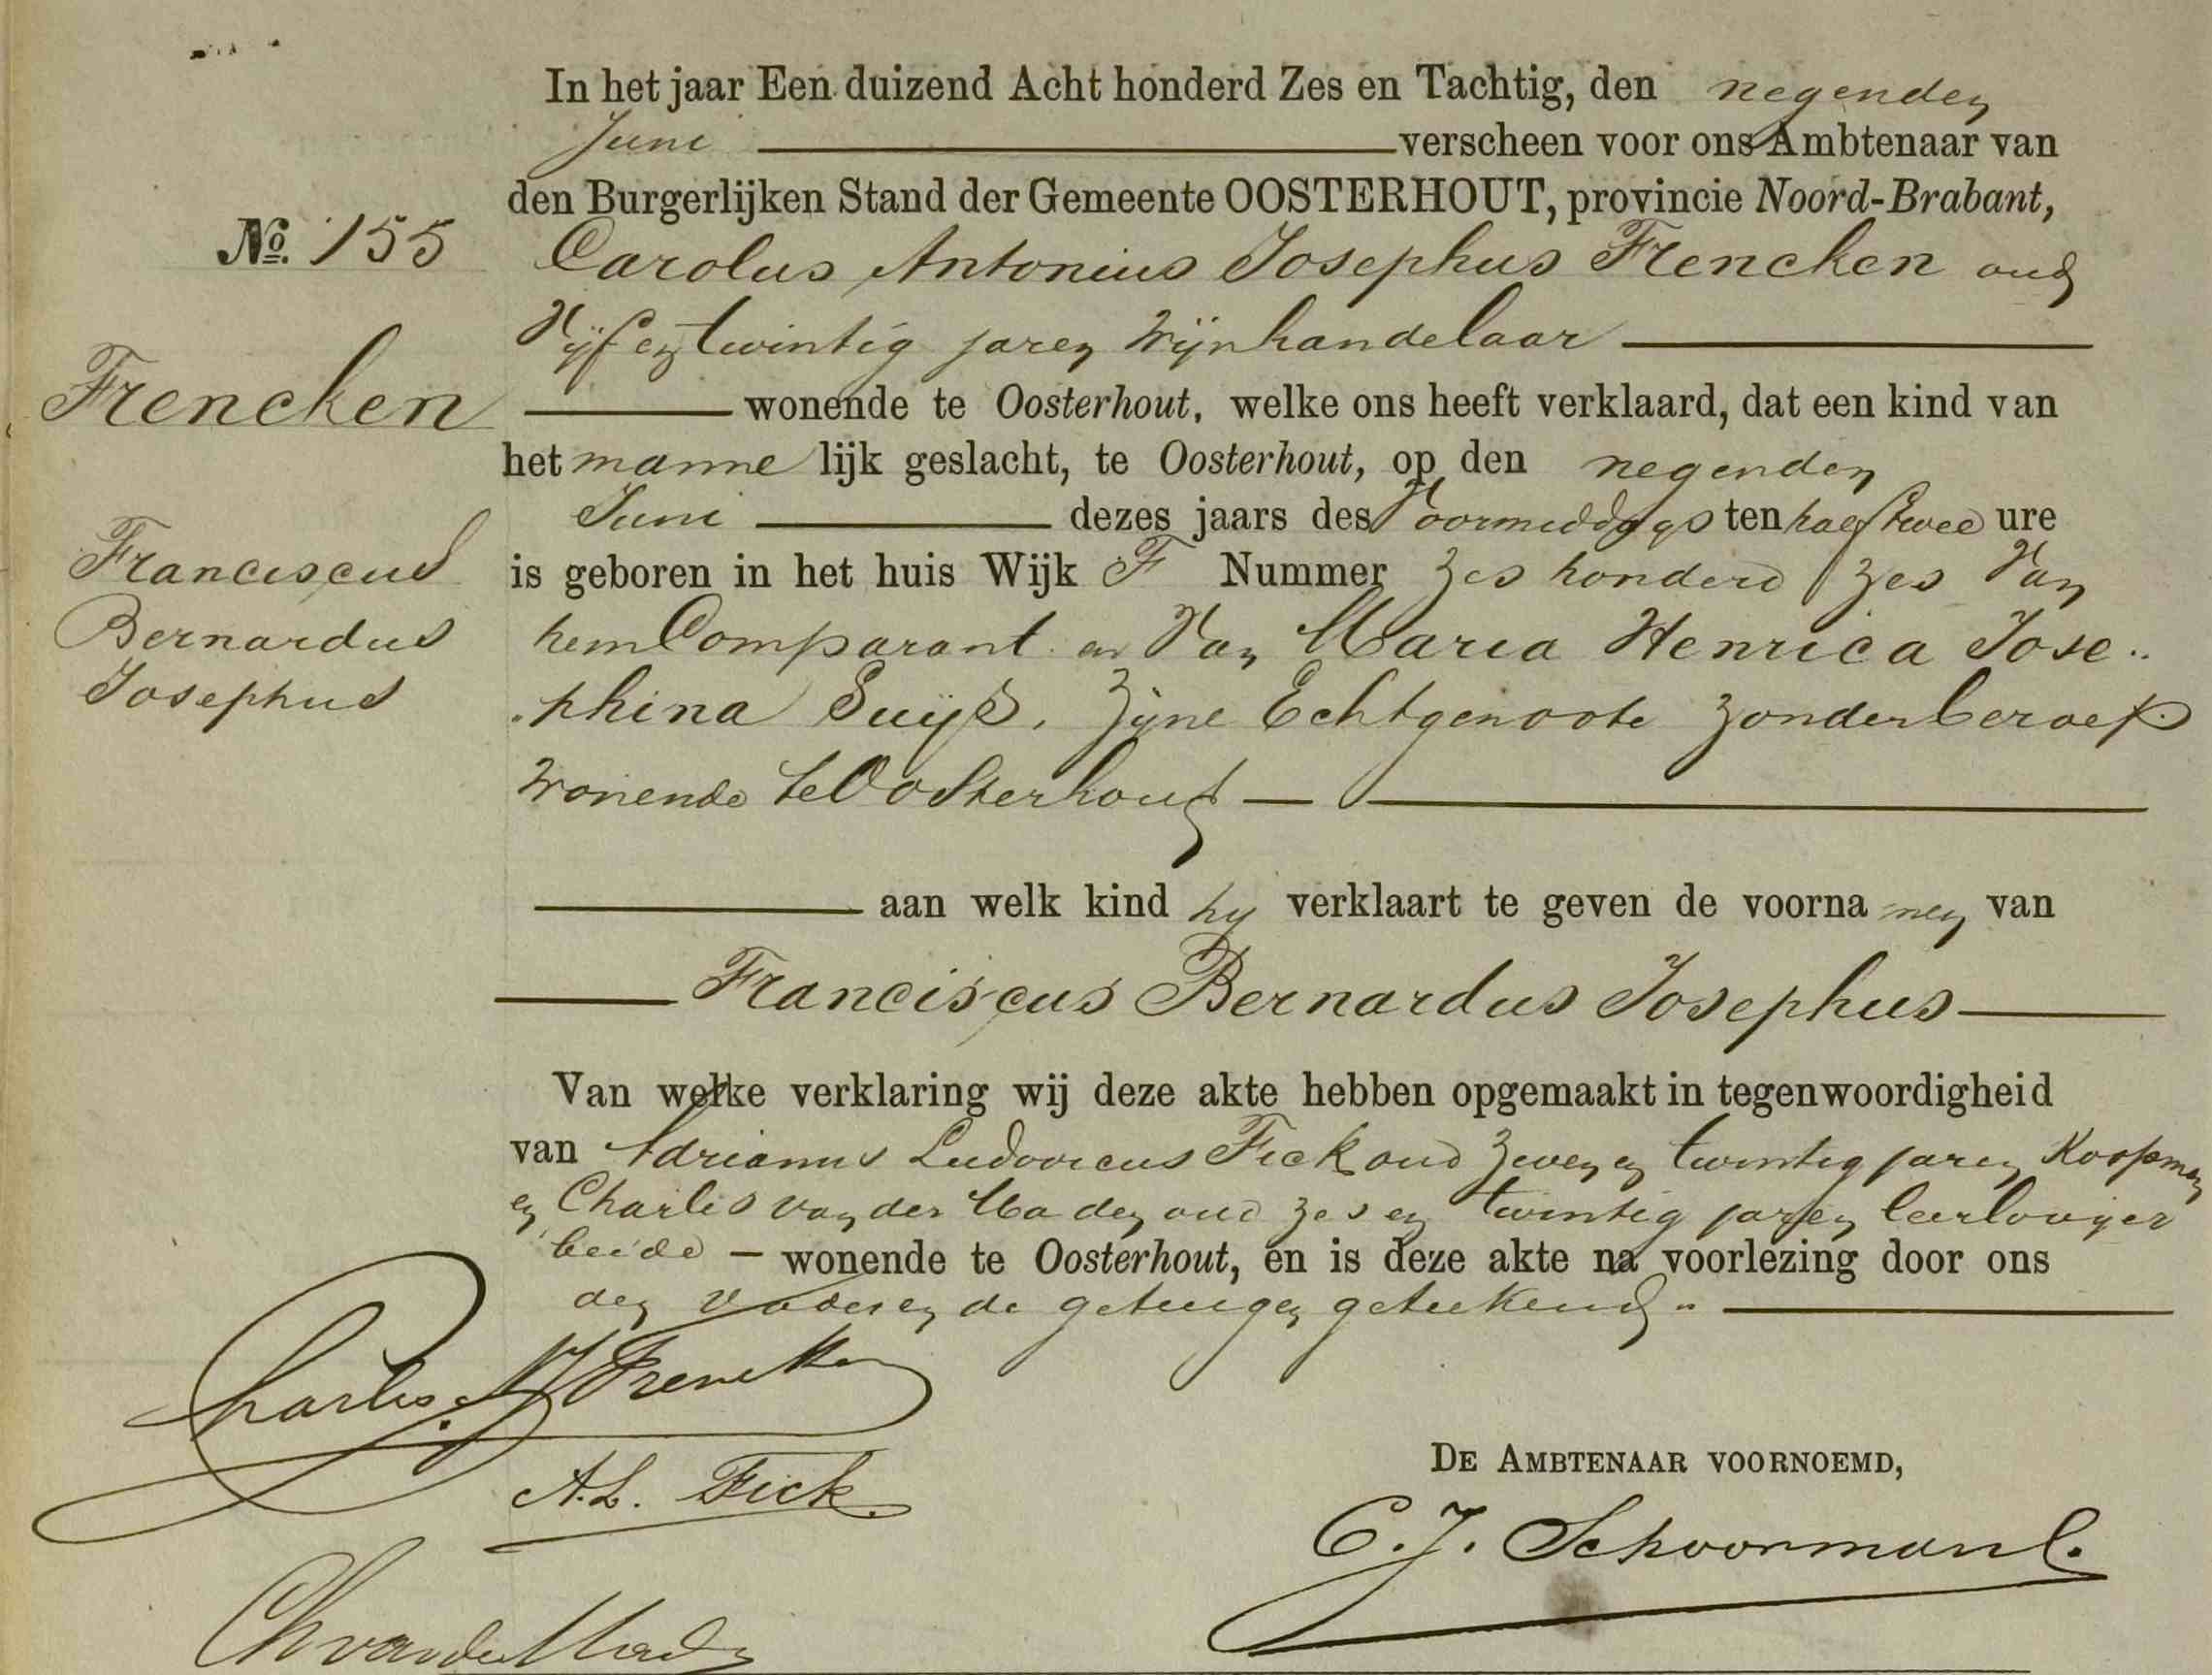 In het jaar Een duizend Acht honderd Zes en Tachtig, den negenden
Juni verscheen voor ons Ambtenaar van
den Burgerlijken Stand der Gemeente OOSTERHOUT, provincie Noord-Brabant,
No. 155
Carolus Antonius Josephus Frencken oud
Vijf en twintig jaren Wijnhandelaar
Frencken
wonende te Oosterhout, welke ons heeft verklaard, dat een kind van
het manne lijk geslacht, te Oosterhout, op den negenden
Juni dezes jaars des Voormiddags ten half twee ure
Franciscus
Bernardus
Josephus
is geboren in het huis Wijk F Nummer Zes honderd Zes Van
hem Comparant en Van Maria Henrica Jose..
.phina Suijs, Zijne Echtgenoote Zonder beroep
Wonende te Oosterhout
aan welk kind hij verklaart te geven de voorna men van
Franciscus Bernardus Josephus
Van welke verklaring wij deze akte hebben opgemaakt in tegenwoordigheid
van Adrianus Ludovicus Fick oud Zeven en twintig jaren Koopman
en Charles van der Maden oud zes en twintig jaren leerlooijer
beide wonende te Oosterhout, en is deze akte na voorlezing door ons
den vader en de getuigen geteekend
Charles A J Frencken
A.L. Fick
Ch van der Maden
DE AMBTENAAR VOORNOEMD,
C. J. Schoormans